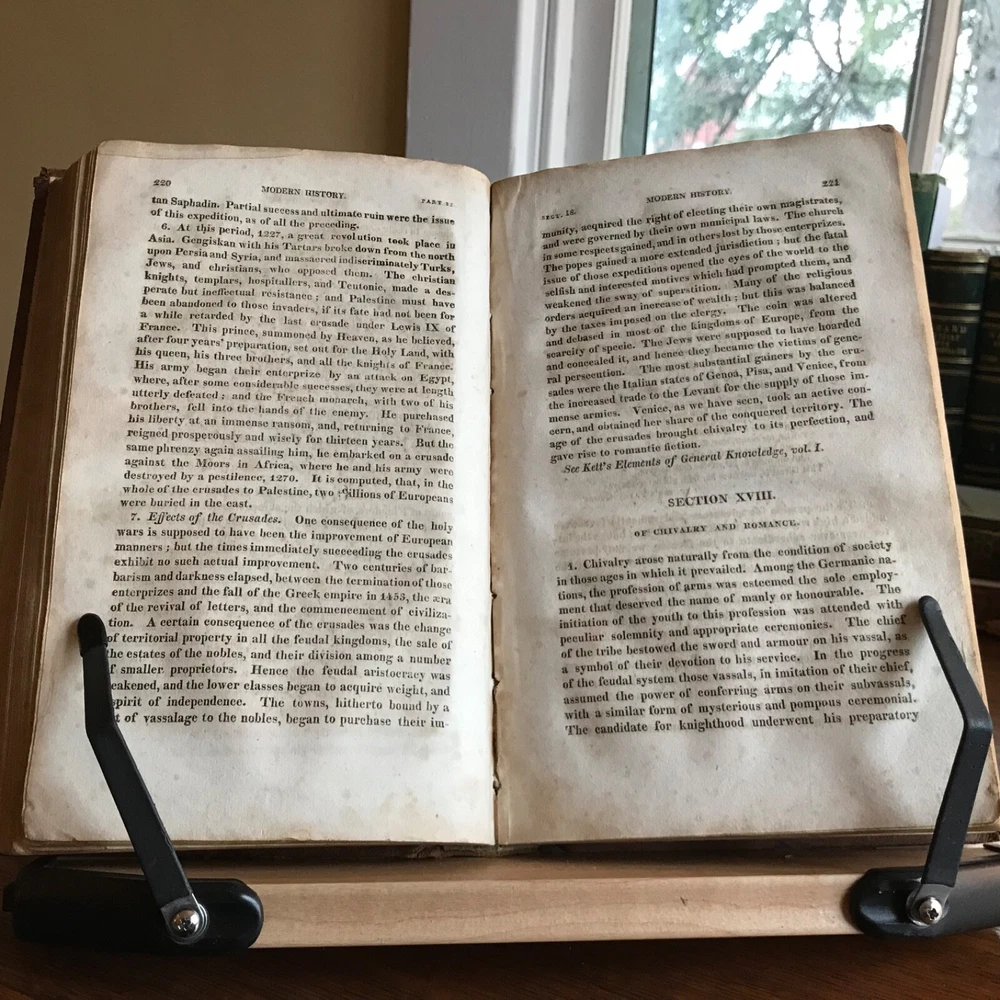 220
MODERN HISTORY.
PART II.
tan Saphadin. Partial success and ultimate ruin were the issue
of this expedition, as of all the preceding.
6. At this period, 1227, a great revolution took place in
Asia. Gengiskan with his Tartars broke down from the north
upon Persia and Syria, and massacred indiscriminately Turks,
Jews, and christians, who opposed them. The christian
knights, templars, hospitallers, and Teutonic, made a des-
perate but ineffectual resistance; and Palestine must have
been abandoned to those invaders, if its fate had not been for
a while retarded by the last crusade under Lewis IX of
France. This prince, summoned by Heaven, as he believed,
after four years' preparation, set out for the Holy Land, with
his queen, his three brothers, and all the knights of France.
His army began their enterprize by an attack on Egypt,
where, after some considerable successes, they were at length
utterly defeated; and the French monarch, with two of his
brothers, fell into the hands of the enemy. He purchased
his liberty at an immense ransom, and, returning to France,
reigned prosperously and wisely for thirteen years. But the
same phrenzy again assailing him, he embarked on a crusade
against the Moors in Africa, where he and his army were
destroyed by a pestilence, 1270. It is computed, that, in the
whole of the crusades to Palestine, two millions of Europeans
were buried in the east.
7. Effects of the Crusades. One consequence of the holy
wars is supposed to have been the improvement of European
manners; but the times immediately succeeding the crusades
exhibit no such actual improvement. Two centuries of bar-
barism and darkness elapsed, between the termination of those
enterprizes and the fall of the Greek empire in 1453, the æra
of the revival of letters, and the commencement of civiliza-
tion. A certain consequence of the crusades was the change
of territorial property in all the feudal kingdoms, the sale of
the estates of the nobles, and their division among a number
f smaller proprietors. Hence the feudal aristocracy was
eakened, and the lower classes began to acquire weight, and
spirit of independence. The towns, hitherto bound by a
t of vassalage to the nobles, began to purchase their im-
SECT. 18.
MODERN HISTORY.
221
munity, acquired the right of electing their own magistrates,
and were governed by their own municipal laws. The church
in some respects gained, and in others lost by those enterprizes.
The popes gained a more extended jurisdiction; but the fatal
issue of those expeditions opened the eyes of the world to the
selfish and interested motives which had prompted them, and
weakened the sway of superstition. Many of the religious
orders acquired an increase of wealth; but this was balanced
by the taxes imposed on the clergy. The coin was altered
and debased in most of the kingdoms of Europe, from the
scarcity of specie. The Jews were supposed to have hoarded
and concealed it, and hence they became the victims of gene-
ral persecution. The most substantial gainers by the cru-
sades were the Italian states of Genoa, Pisa, and Venice, from
the increased trade to the Levant for the supply of those im-
mense armies. Venice, as we have seen, took an active con-
cern, and obtained her share of the conquered territory. The
age of the crusades brought chivalry to its perfection, and
gave rise to romantic fiction.
See Kett's Elements of General Knowledge, vol. I.
SECTION XVIII.
OF CHIVALRY AND ROMANCE.
1. Chivalry arose naturally from the condition of society
in those ages in which it prevailed. Among the Germanic na-
tions, the profession of arms was esteemed the sole employ-
ment that deserved the name of manly or honourable. The
initiation of the youth to this profession was attended with
peculiar solemnity and appropriate ceremonies. The chief
of the tribe bestowed the sword and armour on his vassal, as
a symbol of their devotion to his service. In the progress
of the feudal system those vassals, in imitation of their chief,
assumed the power of conferring arms on their subvassals,
with a similar form of mysterious and pompous ceremonial.
The candidate for knighthood underwent his preparatory